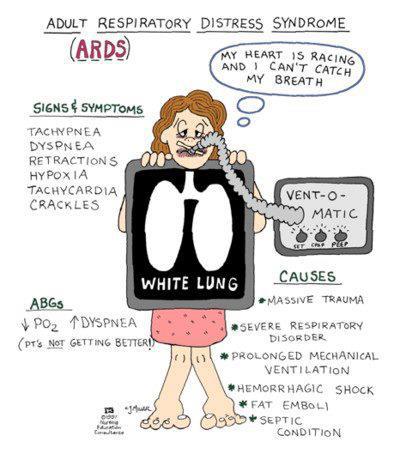 ADULT RESPIRATORY DISTRESS SYNDROME
(ARDS)
MY HEART IS RACING
AND I CAN'T CATCH
MY BREATH
SIGNS & SYMPTOMS
TACHYPNEA
DYSPNEA
RETRACTIONS
HYPOXIA
TACHYCARDIA
CRACKLES
VENT-O-
MATIC
SET CPAP PEEP
WHITE LUNG
ABGs
↓ PO2 ↑ DYSPNEA
(PT'S NOT GETTING BETTER!)
CAUSES
* MASSIVE TRAUMA
* SEVERE RESPIRATORY
DISORDER
* PROLONGED MECHANICAL
VENTILATION
* HEMORRHAGIC SHOCK
* FAT EMBOLI
* SEPTIC
CONDITION
©1997
Nursing
Education
Consultants